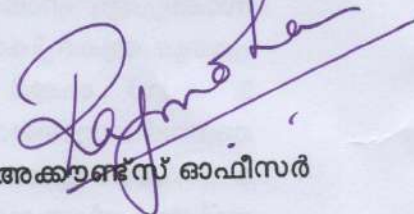 അക്കൗണ്ട്സ് ഓഫീസർ